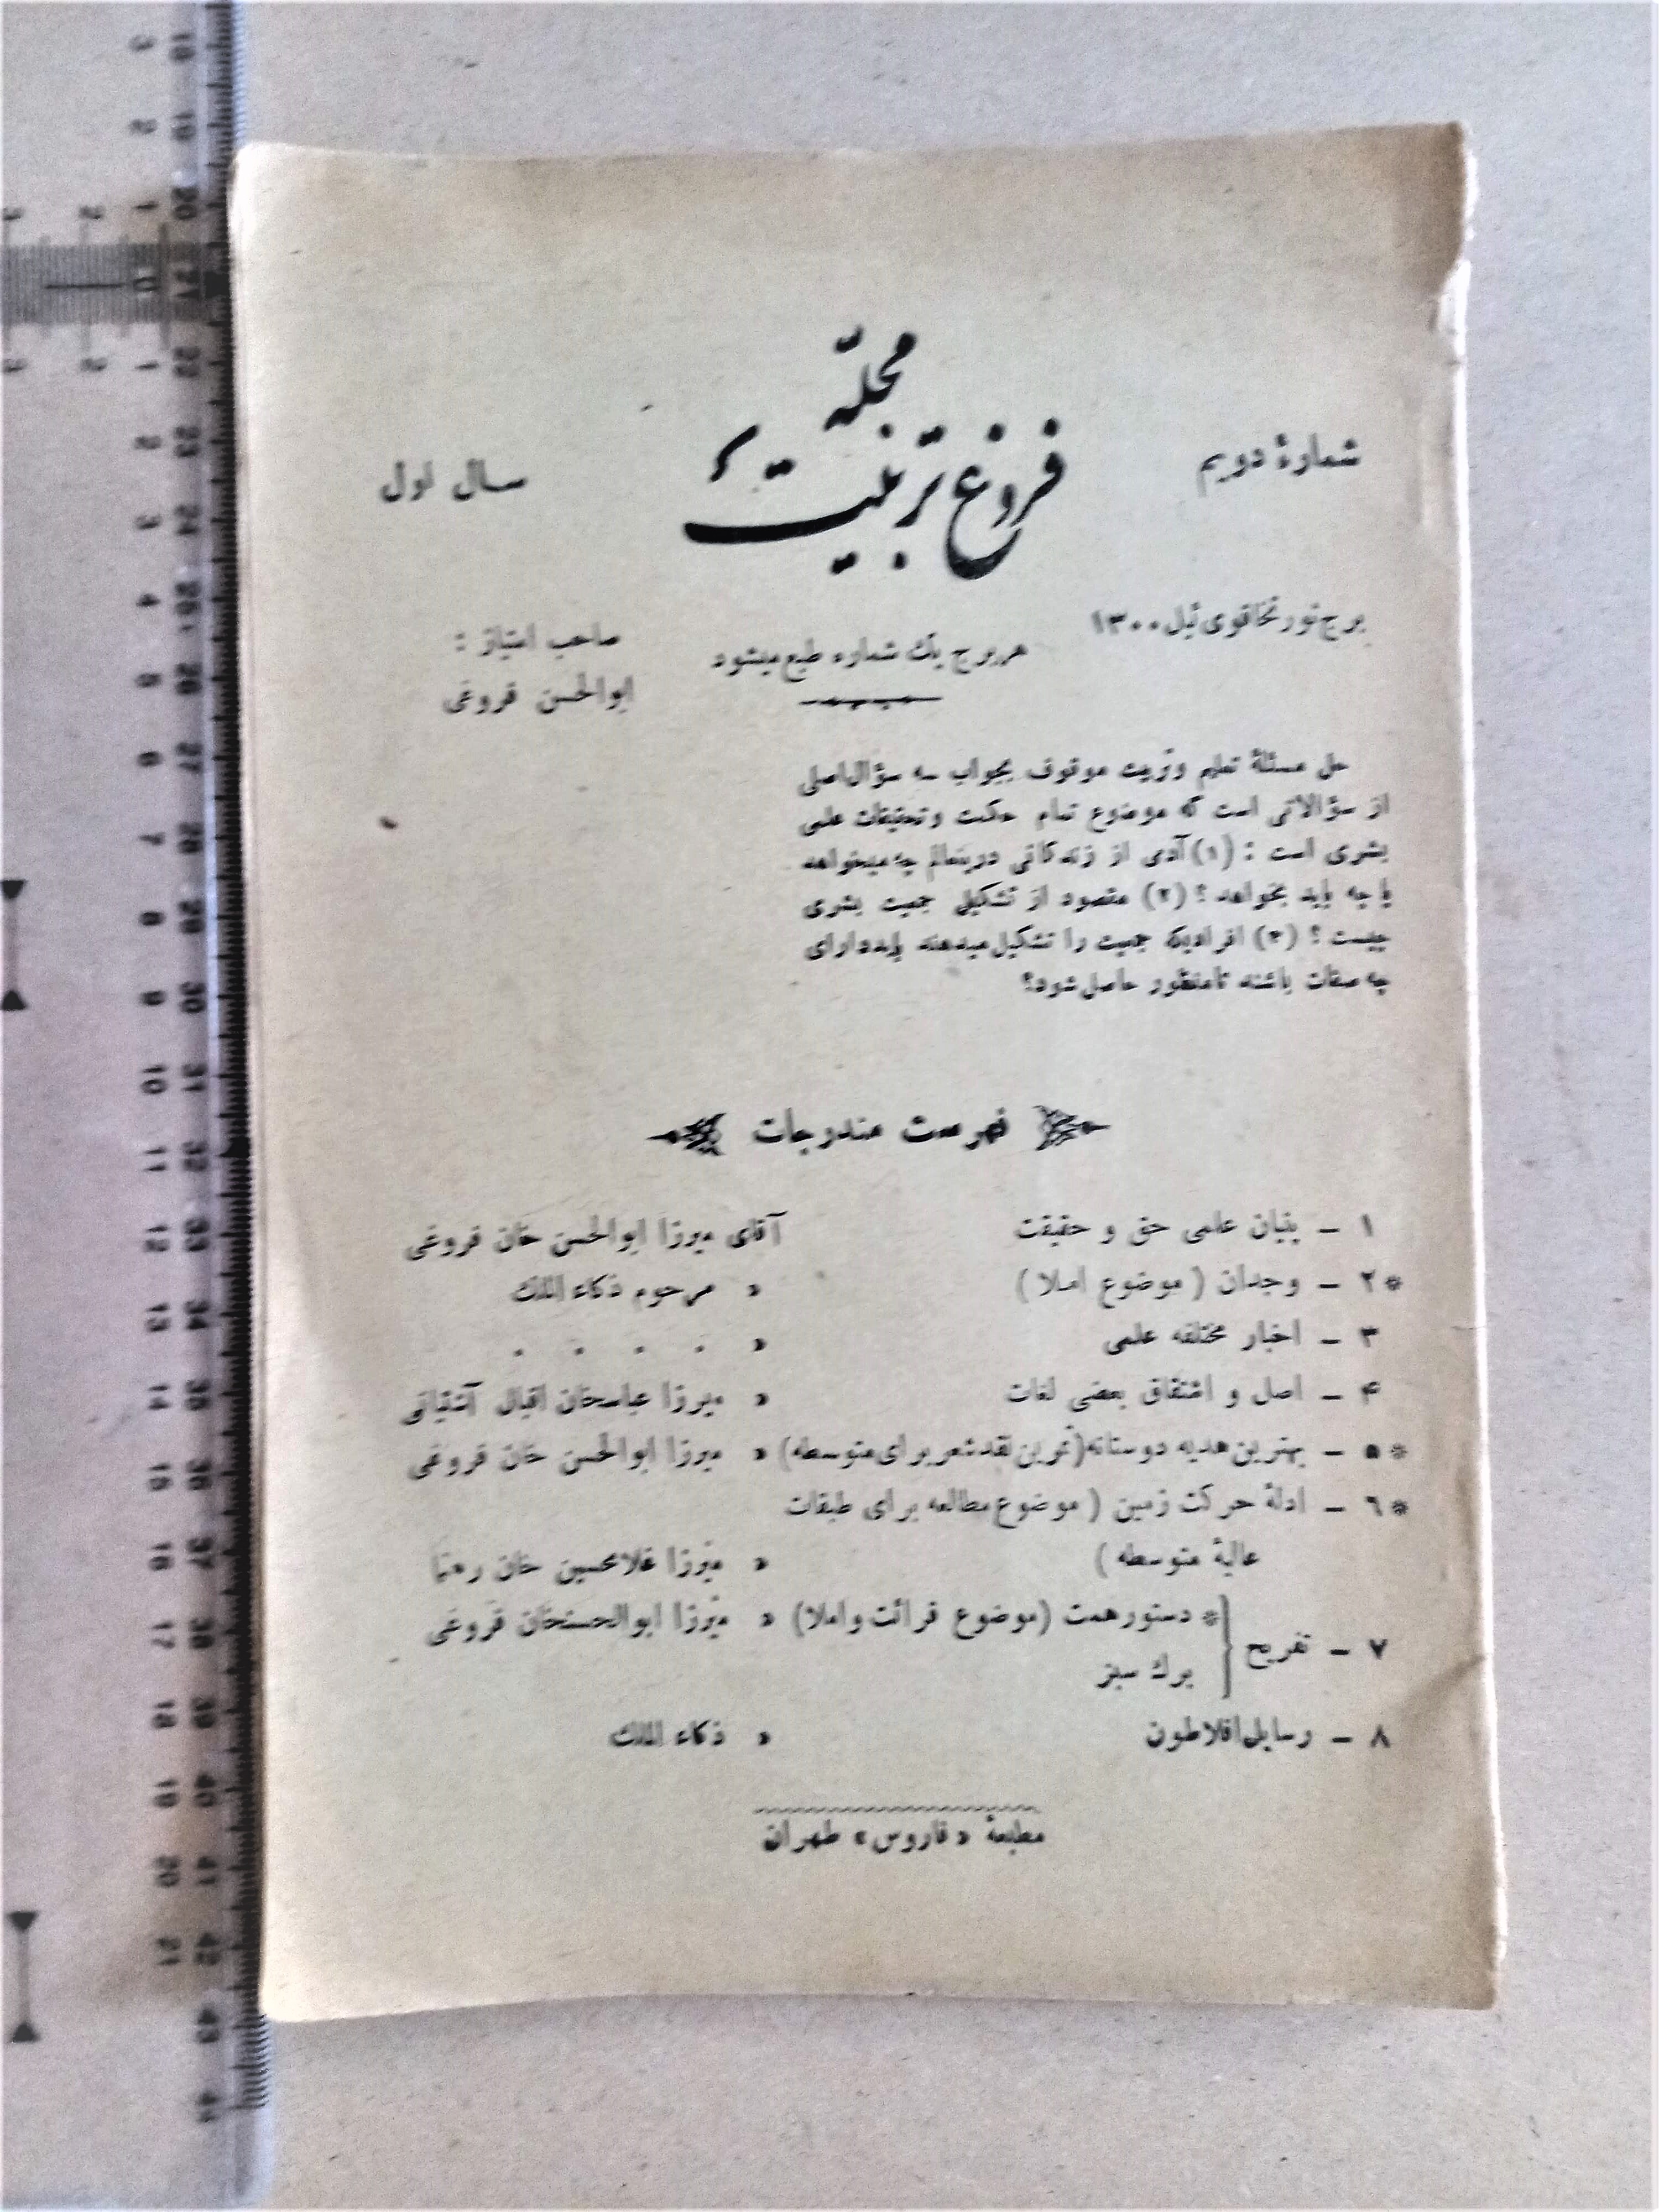 مجلّه
فروغ تربیت
شمارهٔ دویم
سال اول
برج ثور تخاقوی ئیل ۱۳۰۰
هر برج یك شماره طبع میشود
صاحب امتیاز :
ابوالحسن فروغی
حل مسئلهٔ تعلیم و تربیت موقوف بجواب سه سؤال اصلی
از سؤالاتی است که موضوع تمام حکمت و تحقیقات علمی
بشری است : (۱) آدمی از زندگانی درینعالم چه میخواهد
یا چه باید بخواهد ؟ (۲) مقصود از تشکیل جمعیت بشری
چیست ؟ (۳) افرادیکه جمعیت را تشکیل میدهند باید دارای
چه صفات باشند تا منظور حاصل شود؟
فهرست مندرجات
۱ – بنیان علمی حق و حقیقت آقای میرزا ابوالحسن خان فروغی
* ۲ – وجدان ( موضوع املا ) » مرحوم ذکاء الملك
۳ – اخبار مختلفه علمی » . . . .
۴ – اصل و اشتقاق بعضی لغات » میرزا عباسخان اقبال آشتیانی
* ۵ – بهترین هدیه دوستانه (تمرین نقد شعر برای متوسطه) » میرزا ابوالحسن خان فروغی
* ٦ – ادلهٔ حرکت زمین ( موضوع مطالعه برای طبقات
عالیهٔ متوسطه ) » میرزا غلامحسین خان رهنما
۷ – تفریح { * دستور همت (موضوع قرائت و املا) » میرزا ابوالحسنخان فروغی
برك سبز
۸ – رسایل افلاطون » ذکاء الملك
مطبعهٔ « فاروس » طهران
3 18
2 19
1 20
0 21
1 22
2 23
3 24
4 25
5 26
6 27
7 28
8 29
9 30
10 31
11 32
12 33
13 34
14 35
15 36
16 37
17 38
18 39
19 40
20 41
21 42
43
44